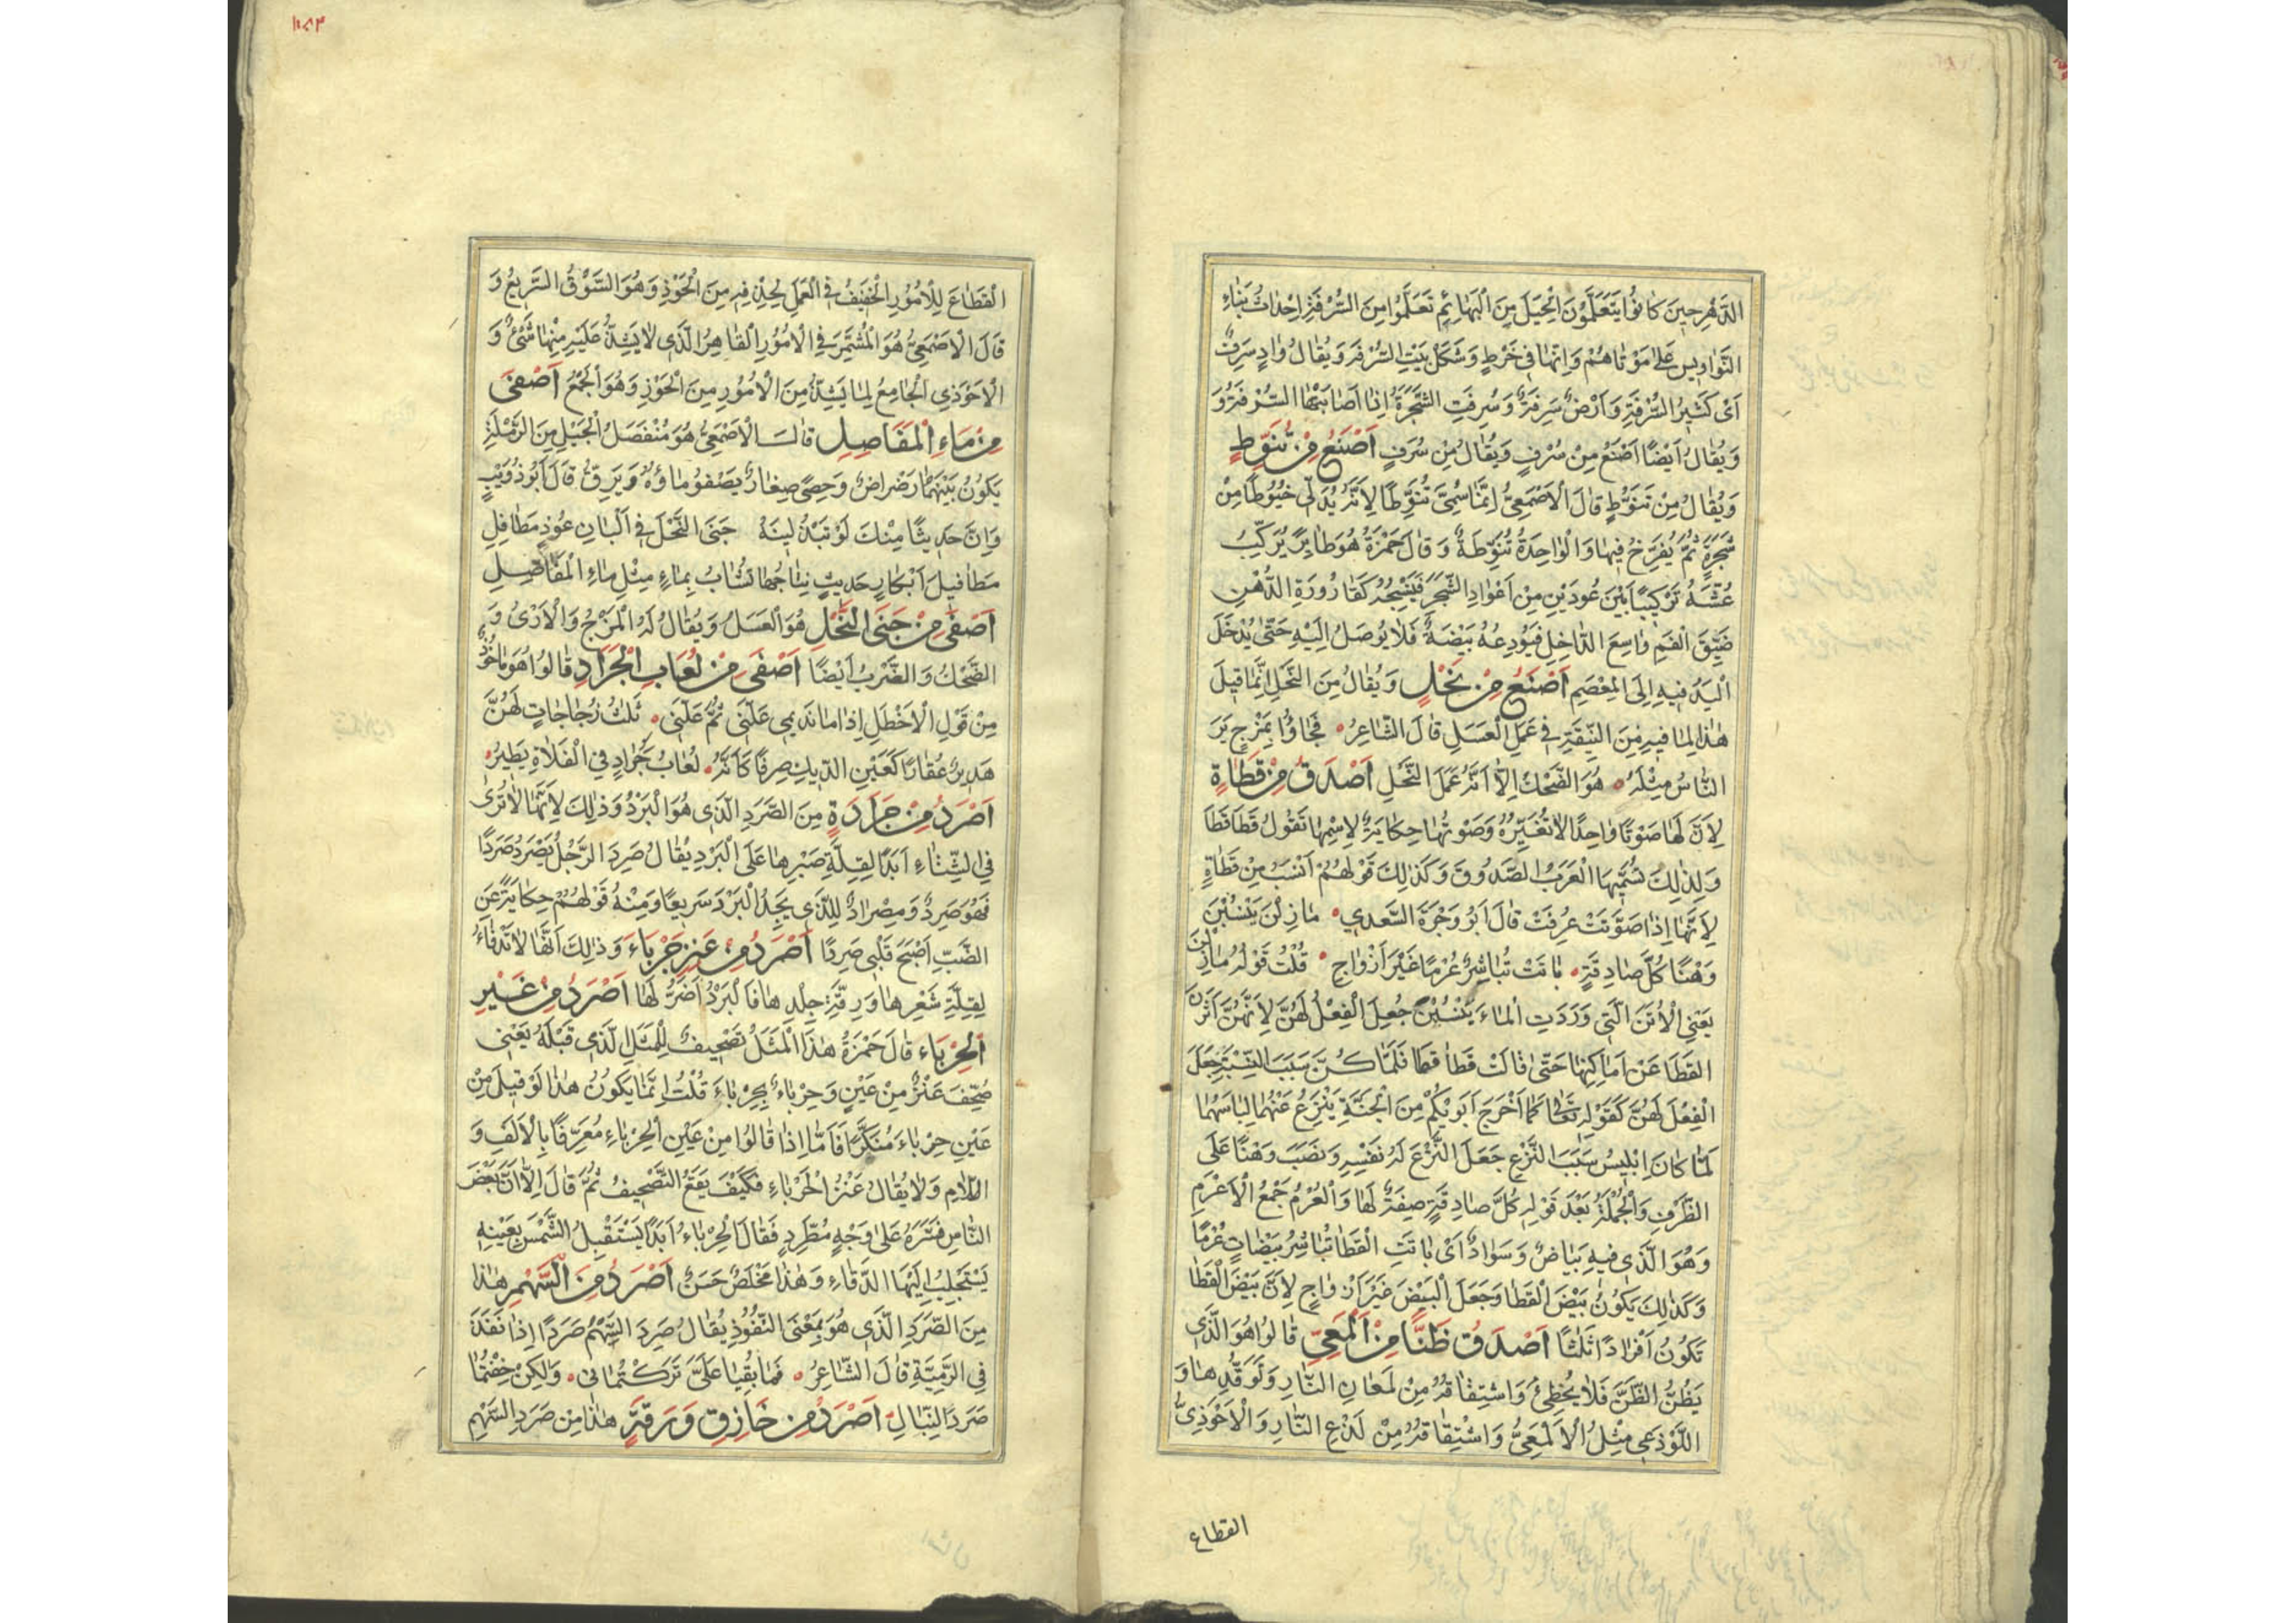 الدَّهْرِ حِينَ كَانُوا يَتَعَلَّمُونَ الْحِيَلَ مِنَ الْبَهَائِمِ تَعَلَّمُوا مِنَ السُّرْفَةِ اِحْدَاثَ بِنَاءِ
النَّوَاوِيسِ عَلَى مَوْتَاهُمْ وَاِنَّهَا فِي خَرْطٍ وَشَكْلِ بَيْتِ السُّرْفَةِ وَيُقَالُ وَادٍ سَرِفٌ
اَيْ كَثِيرُ السُّرْفَةِ وَاَرْضٌ سَرِفَةٌ وَسُرِفَتِ الشَّجَرَةُ اِذَا اَصَابَتْهَا السُّرْفَةُ وَ
وَيُقَالُ اَيْضًا اَصْنَعُ مِنْ سُرْفٍ وَيُقَالُ مِنْ سُرَفٍ اَصْنَعُ مِنْ تُنَوِّطٍ
وَيُقَالُ مِنْ تَنَوُّطٍ قَالَ الْاَصْمَعِيُّ اِنَّمَا سُمِّيَ تُنَوِّطًا لِاَنَّهُ يُدَلِّي خُيُوطًا مِنْ
شَجَرَةٍ ثُمَّ يُفَرِّخُ فِيهَا وَالْوَاحِدَةُ تُنَوِّطَةٌ وَقَالَ حَمْزَةُ هُوَ طَايِرٌ يُرَكِّبُ
عُشَّهُ تَرْكِيبًا بَيْنَ عُودَيْنِ مِنْ اَعْوَادِ الشَّجَرِ فَيَنْسِجُهُ كَقَارُورَةِ الدُّهْنِ
ضَيِّقَ الْفَمِ وَاسِعَ الدَّاخِلِ فَيُودِعُهُ بَيْضَهُ فَلَا يُوصَلُ اِلَيْهِ حَتَّى يُدْخَلَ
الْيَدُ فِيهِ اِلَى الْمِعْصَمِ اَصْنَعُ مِنْ نَحْلٍ وَيُقَالُ مِنَ النَّحْلِ اِنَّمَا قِيلَ
هٰذَا لِمَا فِيهِ مِنَ النِّيقَةِ فِي عَمَلِ الْعَسَلِ قَالَ الشَّاعِرُ ۰ فَجَاؤُا بِمَزْجٍ لَمْ يَرَ
النَّاسُ مِثْلَهُ ۰ هُوَ الضَّحْكُ اِلَّا اَنَّهُ عَمَلُ النَّحْلِ اَصْدَقُ مِنْ قَطَاةٍ
لِاَنَّ لَهَا صَوْتًا وَاحِدًا لَا تُغَيِّرُهُ وَصَوْتُهَا حِكَايَةٌ لِاِسْمِهَا تَقُولُ قَطَا قَطَا
وَلِذٰلِكَ تُسَمِّيهَا الْعَرَبُ الصَّدُوقَ وَكَذٰلِكَ قَوْلُهُمْ اَنْسَبُ مِنْ قَطَاةٍ
لِاَنَّهَا اِذَا صَوَّتَتْ عُرِفَتْ قَالَ اَبُو وَجْزَةَ السَّعْدِي ۰ مَا زِلْنَ يَنْسُبْنَ
وَهْنًا كُلَّ صَادِقَةٍ ۰ بَاتَتْ تُبَاشِرُ عُرْمًا غَيْرَ اَزْوَاجِ ۰ قُلْتُ قَوْلُهُ مَا زِلْنَ
يَعْنِي الْاُتُنَ الَّتِي وَرَدَتِ الْمَاءَ يَنْسُبْنَ جُعِلَ الْفِعْلُ لَهُنَّ لِاَنَّهُنَّ اَثَرْنَ
الْقَطَا عَنْ اَمَاكِنِهَا حَتَّى قَالَتْ قَطَا قَطَا فَلَمَّا كُنَّ سَبَبَ النِّسْبَةِ جَعَلَ
الْفِعْلَ لَهُنَّ كَقَوْلِهِ تَعَالَى كَمَا اَخْرَجَ اَبَوَيْكُمْ مِنَ الْجَنَّةِ يَنْزِعُ عَنْهُمَا لِبَاسَهُمَا
لَمَّا كَانَ اِبْلِيسُ سَبَبَ النَّزْعِ جَعَلَ النَّزْعَ لَهُ نَفْسِهِ وَنَصَبَ وَهْنًا عَلَى
الظَّرْفِ وَالْجُمْلَةُ بَعْدَ قَوْلِهِ كُلَّ صَادِقَةٍ صِفَةٌ لَهَا وَالْعُرْمُ جَمْعُ الْاَعْرَمِ
وَهُوَ الَّذِي فِيهِ بَيَاضٌ وَسَوَادٌ اَيْ بَاتَتِ الْقَطَا تُبَاشِرُ بَيْضَاتٍ عُرْمًا
وَكَذٰلِكَ يَكُونُ بَيْضُ الْقَطَا وَجَعَلَ الْبَيْضَ غَيْرَ اَزْوَاجٍ لِاَنَّ بَيْضَ الْقَطَا
تَكُونُ اَفْرَادًا ثَلٰثًا اَصْدَقُ ظَنًّا مِنْ اَلْمَعِيٍّ قَالُوا هُوَ الَّذِي
يَظُنُّ الظَّنَّ فَلَا يُخْطِئُ وَاشْتِقَاقُهُ مِنْ لَمَعَانِ النَّارِ وَتَوَقُّدِهَا وَ
اللَّوْذَعِي مِثْلُ الْاَلْمَعِيُّ وَاشْتِقَاقُهُ مِنْ لَذْعِ النَّارِ وَالْاَحْوَذِيُّ
القطاع
الْقَطَّاعَ لِلْاُمُورِ الْخَفِيفُ فِي الْعَمَلِ لِحِذْقِهِ مِنَ الْحَوْذِ وَهُوَ السَّوْقُ السَّرِيعُ وَ
قَالَ الْاَصْمَعِيُّ هُوَ الْمُشَمِّرُ فِي الْاُمُورِ الْقَاهِرُ الَّذِي لَا يَشِذُّ عَلَيْهِ مِنْهَا شَيْءٌ وَ
الْاَحْوَذِي الْجَامِعُ لِمَا يَشِذُّ مِنَ الْاُمُورِ مِنَ الْحَوْذِ وَهُوَ الْجَمْعُ اَصْفَى
مِنْ مَاءِ الْمَفَاصِلِ قَالَ الْاَصْمَعِيُّ هُوَ مُنْفَصَلُ الْجَبَلِ مِنَ الرَّمْلَةِ
يَكُونُ بَيْنَهُمَا رَضْرَاضٌ وَحَصًى صِغَارٌ يَصْفُو مَاؤُهُ وَيَرِقُّ قَالَ اَبُو ذُوَيْبٍ
وَاِنَّ حَدِيثًا مِنْكِ لَوْ تَبْذُلِينَهُ جَنَى النَّحْلِ فِي اَلْبَانِ عُوذٍ مَطَافِلِ
مَطَافِيلَ اَبْكَارٍ حَدِيثٍ نِتَاجُهَا تُشَابُ بِمَاءٍ مِثْلِ مَاءِ الْمَفَاصِلِ
اَصْفَى مِنْ جَنَى النَّحْلِ هُوَ الْعَسَلُ وَيُقَالُ لَهُ الْمَزْجُ وَالْاَرْيُ وَ
الضَّحْكُ وَالضَّرَبُ اَيْضًا اَصْفَى مِنْ لُعَابِ الْجَرَادِ قَالُوا هُوَ مَاخُوذٌ
مِنْ قَوْلِ الْاَخْطَلِ اِذَا مَا نَدِيمِي عَلَّنِي ثُمَّ عَلَّنِي ۰ ثَلٰثَ زُجَاجَاتٍ لَهُنَّ
هَدِيرُ عُقَارًا كَعَيْنِ الدِّيكِ صِرْفًا كَاَنَّهُ ۰ لُعَابُ جَرَادٍ فِي الْفَلَاةِ يَطِيرُ ۰
اَصْرَدُ مِنْ جَرَادَةٍ مِنَ الصَّرَدِ الَّذِي هُوَ الْبَرْدُ وَذٰلِكَ لِاَنَّهَا لَا تُرَى
فِي الشِّتَاءِ اَبَدًا لِقِلَّةِ صَبْرِهَا عَلَى الْبَرْدِ يُقَالُ صَرِدَ الرَّجُلُ يَصْرَدُ صَرَدًا
فَهُوَ صَرِدٌ وَمِصْرَادٌ لِلَّذِي يَجِدُ الْبَرْدَ سَرِيعًا وَمِنْهُ قَوْلُهُمْ حِكَايَةً عَنِ
الضَّبِّ اَصْبَحَ قَلْبِي صَرِدًا اَصْرَدُ مِنْ عَنْزٍ جَرْبَاءَ وَذٰلِكَ اَنَّهَا لَا تَدْفَاءُ
لِقِلَّةِ شَعْرِهَا وَرِقَّةِ جِلْدِهَا فَالْبَرْدُ اَضَرُّ لَهَا اَصْرَدُ مِنْ عَيْنِ
الْحِرْبَاءِ قَالَ حَمْزَةُ هٰذَا الْمَثَلُ تَصْحِيفٌ لِلْمَثَلِ الَّذِي قَبْلَهُ يَعْنِي
صُحِّفَ عَنْزٌ مِنْ عَيْنٍ وَحِرْبَاءُ بِجَرْبَاءَ قُلْتُ اِنَّمَا يَكُونُ هٰذَا لَوْ قِيلَ مِنْ
عَيْنِ حِرْبَاءَ مُنَكَّرًا فَاَمَّا اِذَا قَالُوا مِنْ عَيْنِ الْحِرْبَاءِ مُعَرَّفًا بِالْاَلِفِ وَ
اللَّامِ وَلَا يُقَالُ عَنْزُ الْجَرْبَاءِ فَكَيْفَ يَقَعُ التَّصْحِيفُ ثُمَّ قَالَ اِلَّا اَنَّ بَعْضَ
النَّاسِ فَسَّرَهُ عَلَى وَجْهٍ مُطَّرِدٍ فَقَالَ الْحِرْبَاءُ اَبَدًا يَسْتَقْبِلُ الشَّمْسَ بِعَيْنِهِ
يَسْتَجْلِبُ اِلَيْهَا الدَّفَاءَ وَهٰذَا مَخْلَصٌ حَسَنٌ اَصْرَدُ مِنَ السَّهْمِ هٰذَا
مِنَ الصَّرَدِ الَّذِي هُوَ بِمَعْنَى النُّفُوذِ يُقَالُ صَرِدَ السَّهْمُ صَرَدًا اِذَا نَفَذَ
فِي الرَّمِيَّةِ قَالَ الشَّاعِرُ ۰ فَمَا بُقْيَا عَلَيَّ تَرَكْتُمَانِي ۰ وَلٰكِنْ خِفْتُمَا
صَرَدَ النِّبَالِ اَصْرَدُ مِنْ خَازِقٍ وَرَقَةٍ هٰذَا مِنْ صَرَدِ السَّهْمِ